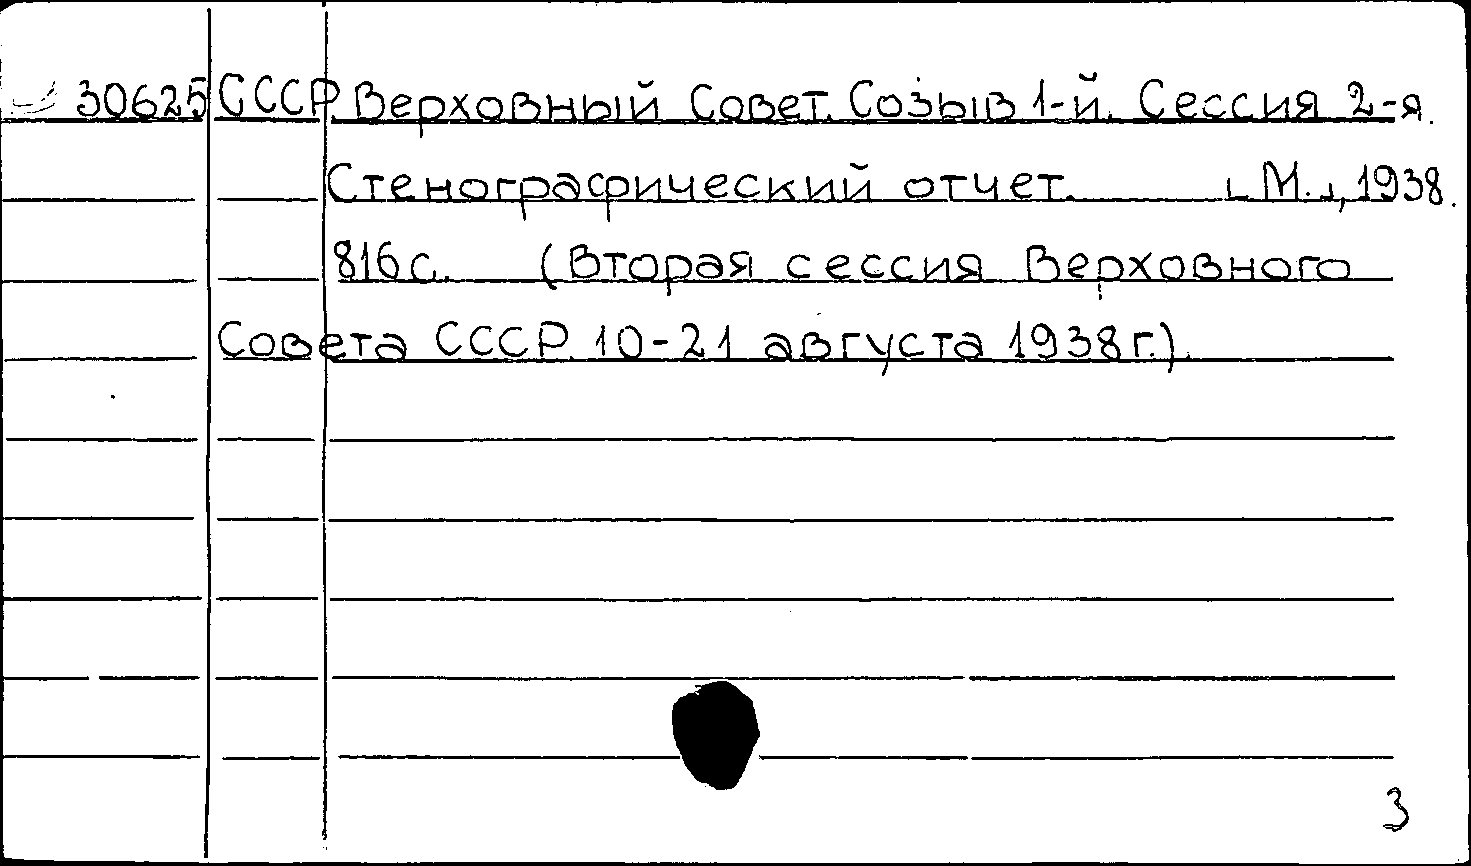 30625 СССР Верховный Совет. Созыв 1-й. Сессия 2-я.
Стенографический отчет. [М.], 1938.
816 с. (Вторая сессия Верховного
Совета СССР 10-21 августа 1938 г.).
3